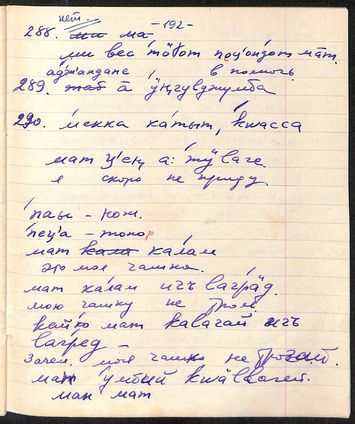 -192-
нет.
288. ма-
ми вес то́бот поц'о́ндот ма̄т.
а́джандане в помочь
289. таб а̄ ӱ́ӊгувджумба
290. ме́кка ка́тыт, kwа́сса
мат ц'еӊ а: жӱ́ваге
я скоро не приду.
па́ы - нож.
пец'а - топор
мат кала́м
это моя чашка.
мат кала́м игъ вагра̄д.
мою чашку не
кайко мат кавачай игъ
вагред -
зачем моя чашка не трогай.
мат у́мбый kwа̄́ввагей.
ман мат